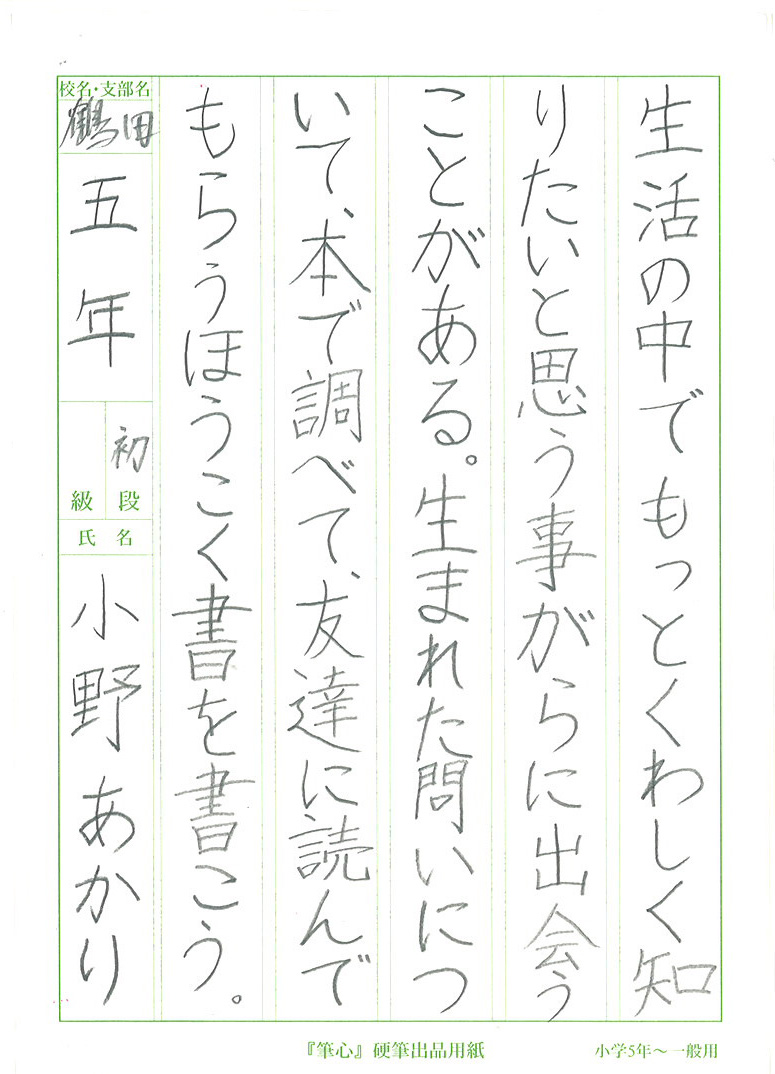 生活の中でもっとくわしく知
りたいと思う事がらに出会う
ことがある。生まれた問いにつ
いて、本で調べて、友達に読んで
もらうほうこく書を書こう。
校名・支部名
鶴田
五年
初
級 段
氏名
小野あかり
『筆心』硬筆出品用紙
小学5年～一般用